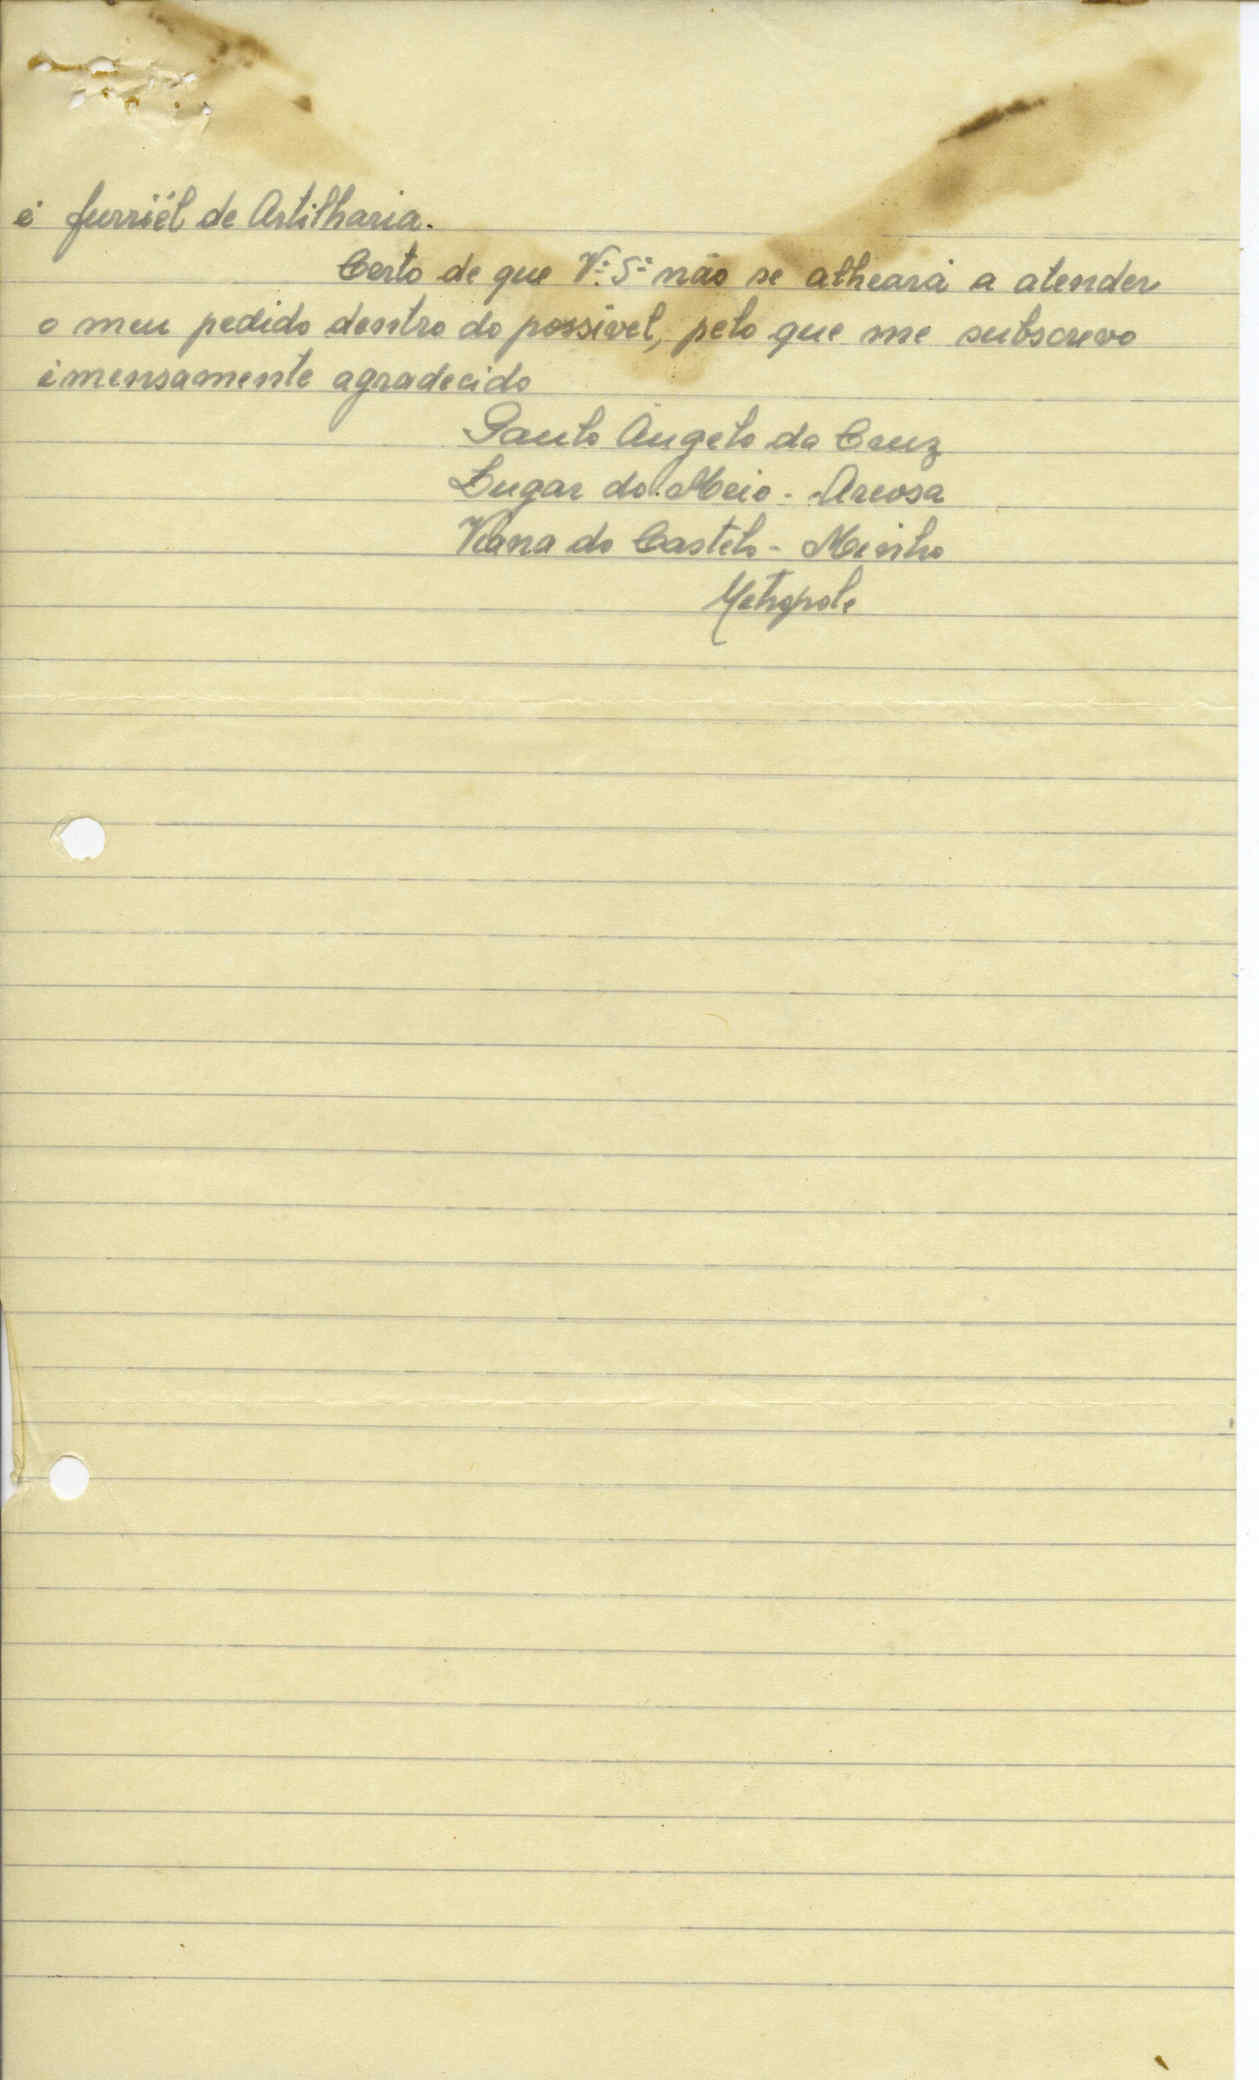 é furriél de Artilharia.
Certo de que V.ª S.ª não se alheará a atender
o meu pedido dentro do possível, pelo que me subscrevo
imensamente agradecido
Paulo Ângelo da Cruz
Lugar do Meio - Areosa
Viana do Castelo - Minho
Metropole